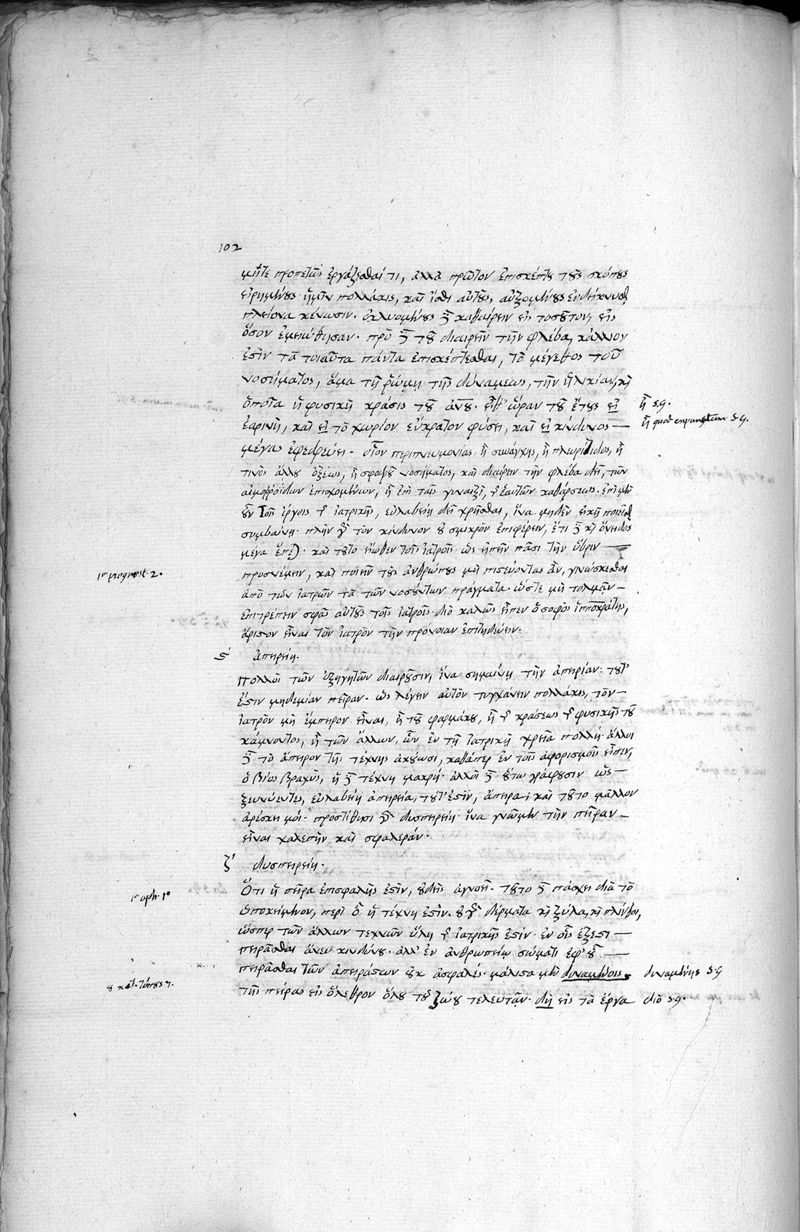 102
μήτε προπετῶς ἐργάζεσθαί τι, ἀλλὰ πρῶτον ἐπισκέπτου τοὺς σκόπους
εἰρημένους ἡμῖν πολλάκις, καὶ ἴσθι αὐτοὺς, αὐξομένους ἐνδείκνυσθαι
πλείονα κένωσιν. ἐκλυομένους δὲ καθαίρειν εἰς τοσοῦτον, εἰς
ὅσον ἐμειώθησαν. πρὸ δὲ τοῦ διαιρεῖν τὴν φλέβα, κάλλιον
ἐστὶν τὰ τοιαῦτα πάντα ἐπισκέπτεσθαι, τὸ μέγεθος τοῦ
νοσήματος, ἅμα τῇ ῥώμῃ τῆς δυνάμεως, τὴν ἡλικίαν, καὶ
ὁποία ἡ φυσικὴ κρᾶσις τοῦ ἀνου. ὥραν τοῦ ἔτους εἰ
ἐαρινὴ, καὶ εἰ τὸ χωρίον εὔκρατον φύσει, καὶ εἰ κίνδυνος
μέγας ἐφεδρεύει. οἷον περιπνευμονίας, ἢ συνάγχης, ἢ πλευρίτιδος, ἤ
τινος ἄλλου ὀξέως, ἢ σφοδροῦ νοσήματος, καὶ διαιρεῖν τὴν φλέβα δεῖ, τῶν
αἱμοῤῥοΐδων ἐπισχομένων, ἢ ἐπὶ ταῖς γυναιξὶ, τῆς ἑαυτῶν καθάρσεως.
οὖν τοῖς ἔργοις τῆς ἰατρικῆς, εὐλαβείῃ δεῖ χρῆσθαι, ἵνα μηδὲν εἰκῇ ποιεῖσθαι
συμβαίνῃ. πλὴν γὰρ τὸν κίνδυνον οὐ σμικρὸν ἐπιφέρειν, ἔτι δὲ καὶ ὄνειδος
μέγα. καὶ τοῦτο εἴωθεν τοῖς ἰατροῖς ὡς εἰπεῖν πᾶσι τὴν ὕβριν
προσνέμειν, καὶ ποιεῖν τοὺς ἀνθρώπους μὴ πιστεύοντας ἂν, γινώσκεσθαι
ἀπὸ τῶν ἰατρῶν τὰ τῶν νοσούντων πράγματα. ὥστε μὴ τολμᾶν
ἐπιτρέπειν σφᾶς αὐτοὺς τοῖς ἰατροῖς. διὸ καλῶς εἶπεν ὁ σοφὸς ἱπποκράτης,
ἄριστον εἶναι τὸν ἰατρὸν τὴν πρόνοιαν ἐπιτηδεύειν.
ϛ΄ ἀπειρίη.
Πολλοὶ τῶν ἐξηγητῶν διαιροῦσιν, ἵνα σημαίνῃ τὴν ἀπειρίαν. τουτ
ἔστιν μηδεμίαν πεῖραν. ὡς λέγειν αὐτὸν τυγχάνειν πολλάκις, τὸν
ἰατρὸν μὴ ἔμπειρον εἶναι, ἢ τοῦ φαρμάκου, ἢ τῆς κράσεως τῆς φυσικῆς τοῦ
κάμνοντος, ἢ τῶν ἄλλων, ὧν ἐν τῇ ἰατρικῇ χρεία πολλή. ἄλλοι
δὲ τὸ ἄπειρον τῆς τέχνης ἀκούωσι, καθάπερ ἐν τοῖς ἀφορισμοῖς εἶπεν,
ὁ βίος βραχὺς, ἡ δὲ τέχνη μακρή. ἄλλοι δὲ οὕτω γράφουσιν ὡς
ζευγνύντες, εὐλαβείη ἀπειρεία, τουτ ἐστιν, ἄπειρα. καὶ τοῦτο μᾶλλον
ἀρέσκει μοι. προστίθησι γὰρ δυσπειρίη. ἵνα γνῶμεν τὴν πεῖραν
εἶναι χαλεπὴν καὶ σφαλεράν.
ζ΄ δυσπειρίη.
Ὅτι ἡ πεῖρα ἐπισφαλὴς ἐστὶν, οὐδεὶς ἀγνοεῖ. τοῦτο δὲ πάσχει διὰ τὸ
ὑποκείμενον, περὶ ὃ ἡ τέχνη ἐστίν. οὐ γὰρ δέρματα καὶ ξύλα, καὶ πλίνθοι,
ὥσπερ τῶν ἄλλων τεχνῶν ὕλη τῆς ἰατρικῆς ἐστίν. ἐν οἷς ἔξεστι
πειρᾶσθαι ἄνευ κινδύνου. ἀλλ' ἐν ἀνθρωπείῳ σώματι ἐφ' οὗ
πειρᾶσθαι τῶν ἀπειράστων οὐκ ἀσφαλές. μάλιστα μὲν δυναμένοις
τῆς πείρας εἰς ὄλεθρον ὅλου τοῦ ζώου τελευτᾶν. δεῖ εἰς τὰ ἔργα
ἢ s.g.
s.g.
1° prognost. 2.
1° aph. 1°
δυναμένης s.g
διὸ s.g.